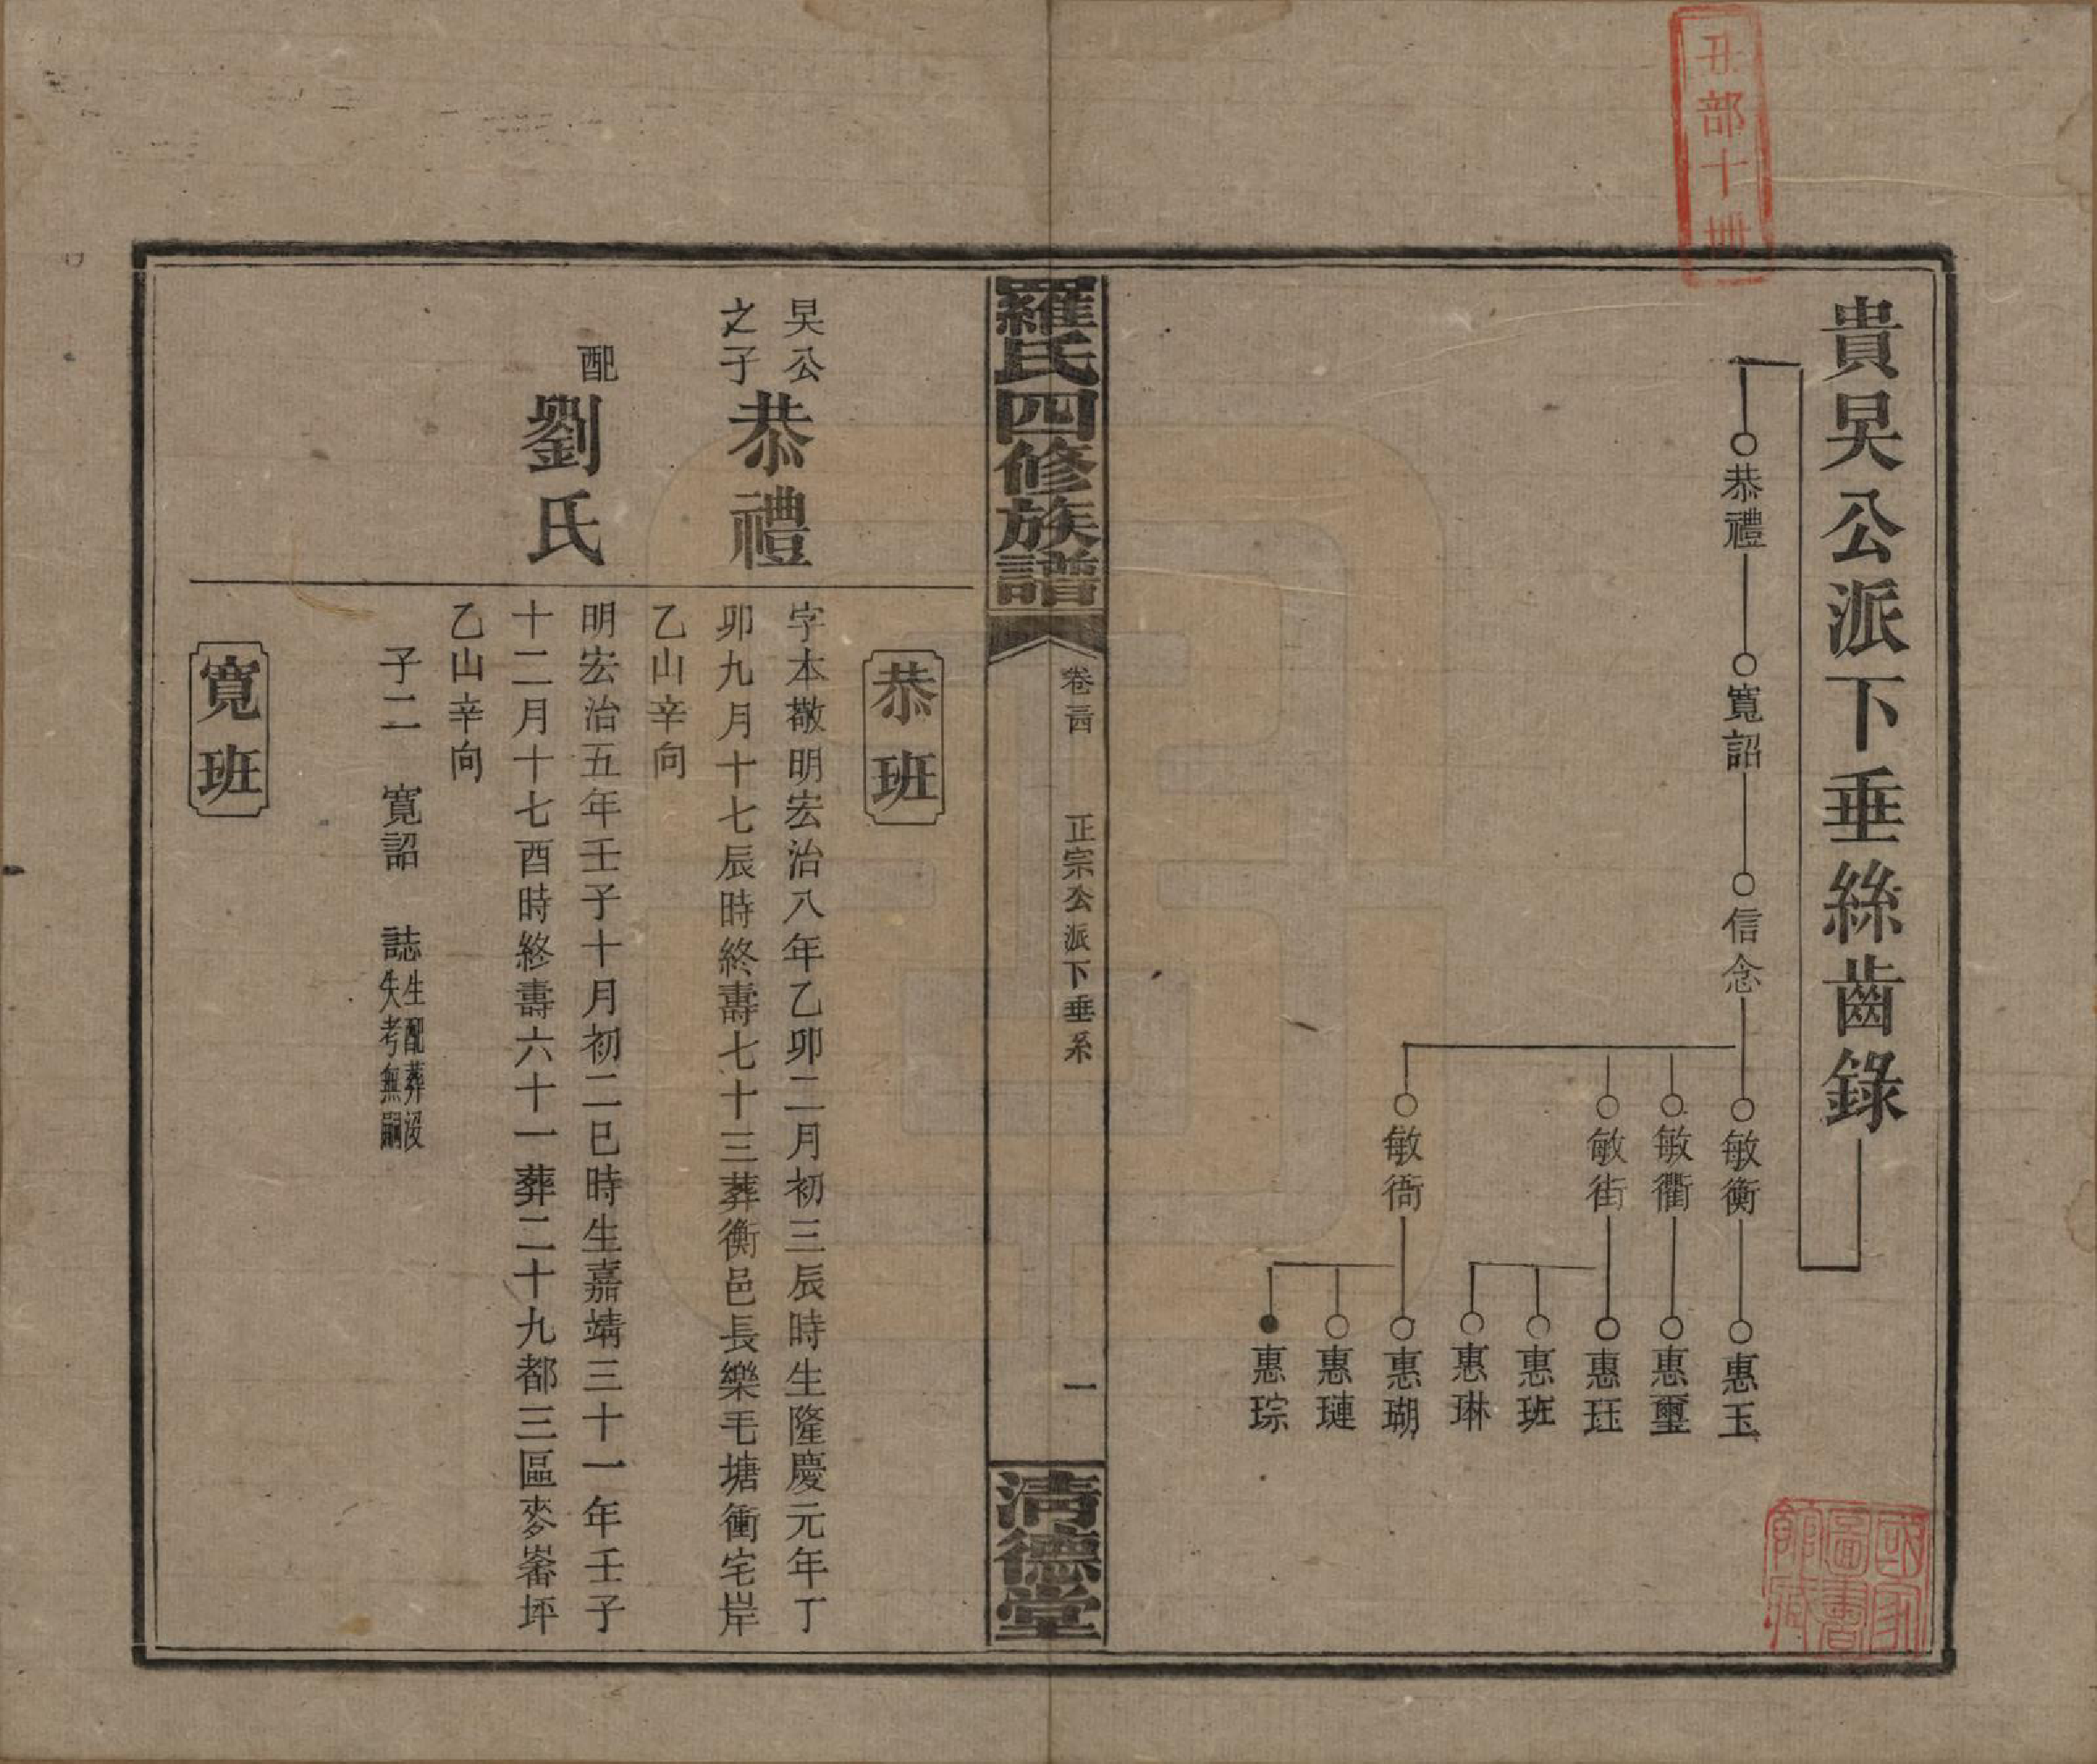 丑部十冊
貴昊公派下垂絲齒錄
恭禮
寬詔
信念
敏衡
敏衢
敏街
敏衙
惠玉
惠璽
惠珏
惠班
惠琳
惠瑚
惠璉
惠琮
國家
圖書
館藏
羅氏四修族譜
卷三四
正宗公派下垂系
一
清德堂
恭班
昊公
之子
恭禮
字本敬明宏治八年乙卯二月初三辰時生隆慶元年丁
卯九月十七辰時終壽七十三葬衡邑長樂毛塘衝宅岸
乙山辛向
配
劉氏
明宏治五年壬子十月初二巳時生嘉靖三十一年壬子
十二月十七酉時終壽六十一葬二十九都三區麥畬坪
乙山辛向
子二 寬詔 誌生配葬沒
失考無嗣
寬班